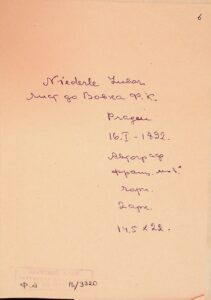 6
Niederle Lubor
лист до Вовка Ф.К.
Prague
16.I - 1892.
Автограф
франц. мов.
чорн.
2 арк.
14.5 x 22.
Ф.А В/3320